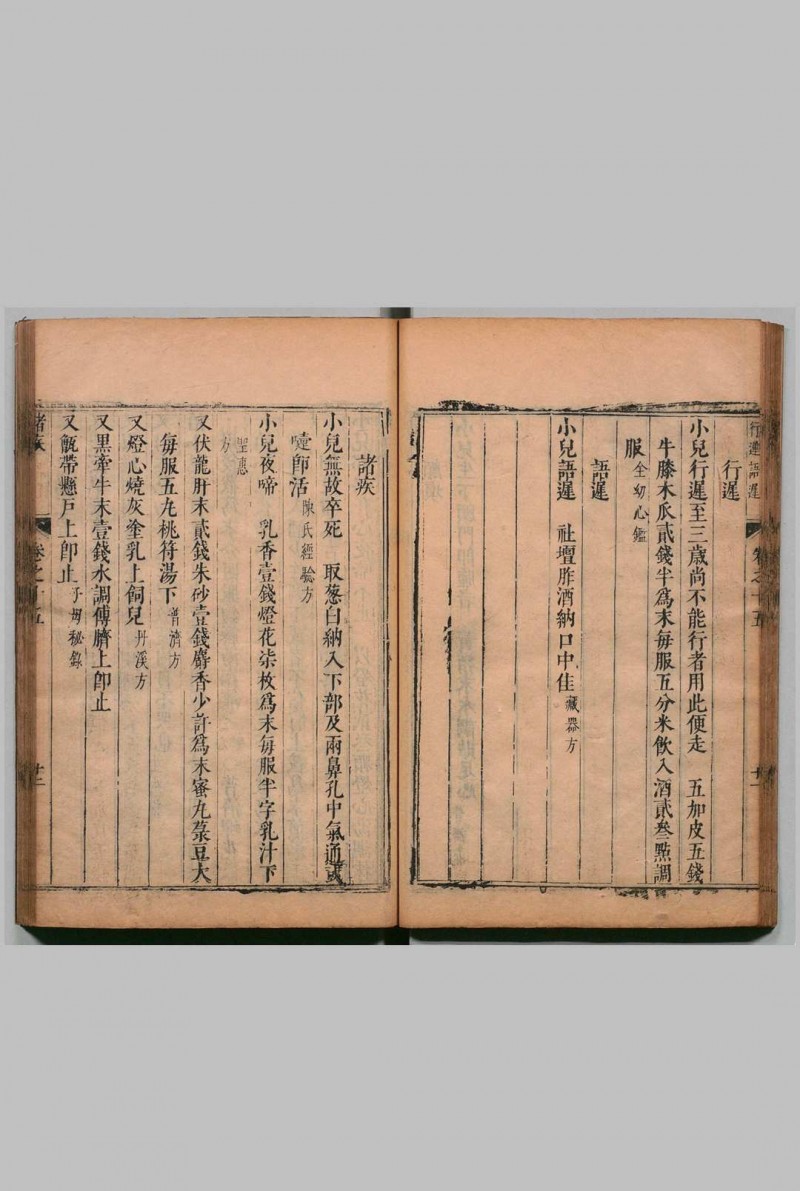 行遲語遲 卷之十五 廿一
行遲
小兒行遲至三歲尚不能行者用此便走 五加皮五錢
牛膝木瓜貳錢半爲末每服五分米飲入酒貳叁點調
服全幼心鑑
語遲
小兒語遲 社壇胙酒納口中佳藏器方
諸疾
小兒無故卒死 取葱白納入下部及兩鼻孔中氣通或
嚏卽活陳氏經驗方
小兒夜啼 乳香壹錢燈花柒枚爲末每服半字乳汁下
聖惠方
又伏龍肝末貳錢朱砂壹錢麝香少許爲末蜜丸菉豆大
每服五丸桃符湯下普濟方
又燈心燒灰塗乳上飼兒丹溪方
又黑牽牛末壹錢水調傅臍上卽止
又甑帶懸戶上卽止子母秘錄
諸疾 卷之十五 廿二